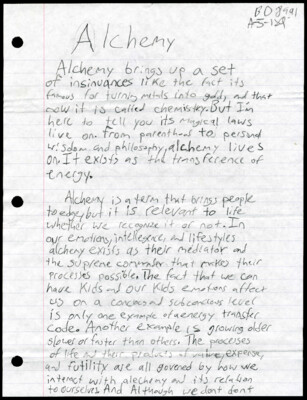 Alchemy
Alchemy brings up a set
of insinuances like the fact its
famous for turning metals into gold, and that
now it is called chemistry. But I'm
here to tell you its magical laws
live on. From parenthood to personal
wisdom and philosophy, alchemy lives
on. It exists as the transference of
energy.
Alchemy is a term that brings people
to edge, but it is relevant to life
whether we recognize it or not. In
our emotions, intelligence, and lifestyles
alchemy exists as their mediator and
the supreme commander that makes their
processes possible. The fact that we can
have kids and our kids emotions affect
us on a concious and subconcious level
is only one example of energy transfer
code. Another example is growing older
slower or faster than others. The processes
of life and their products of
and futility are all governed by how we
interest with alechemy and its relation
to ourselves. And Although we dont dont